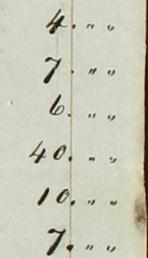 4. " "
7. " "
6. " "
40. " "
10. " "
7. " "